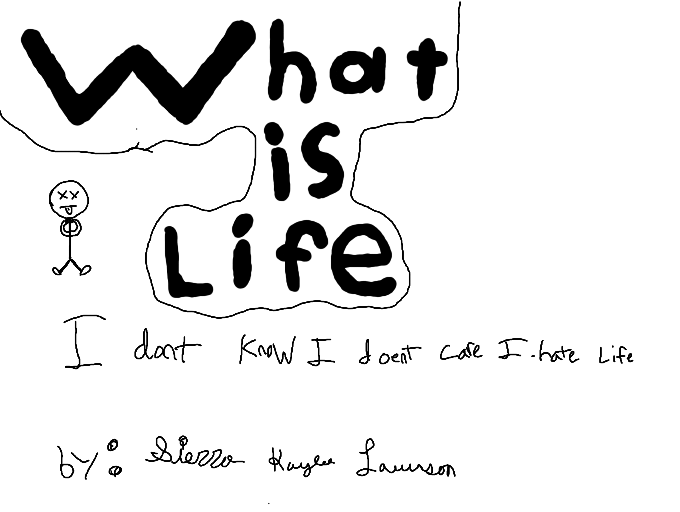 What
is
Life
I dont know I doent care I hate Life
by: Sierra Kaylee Lawrson